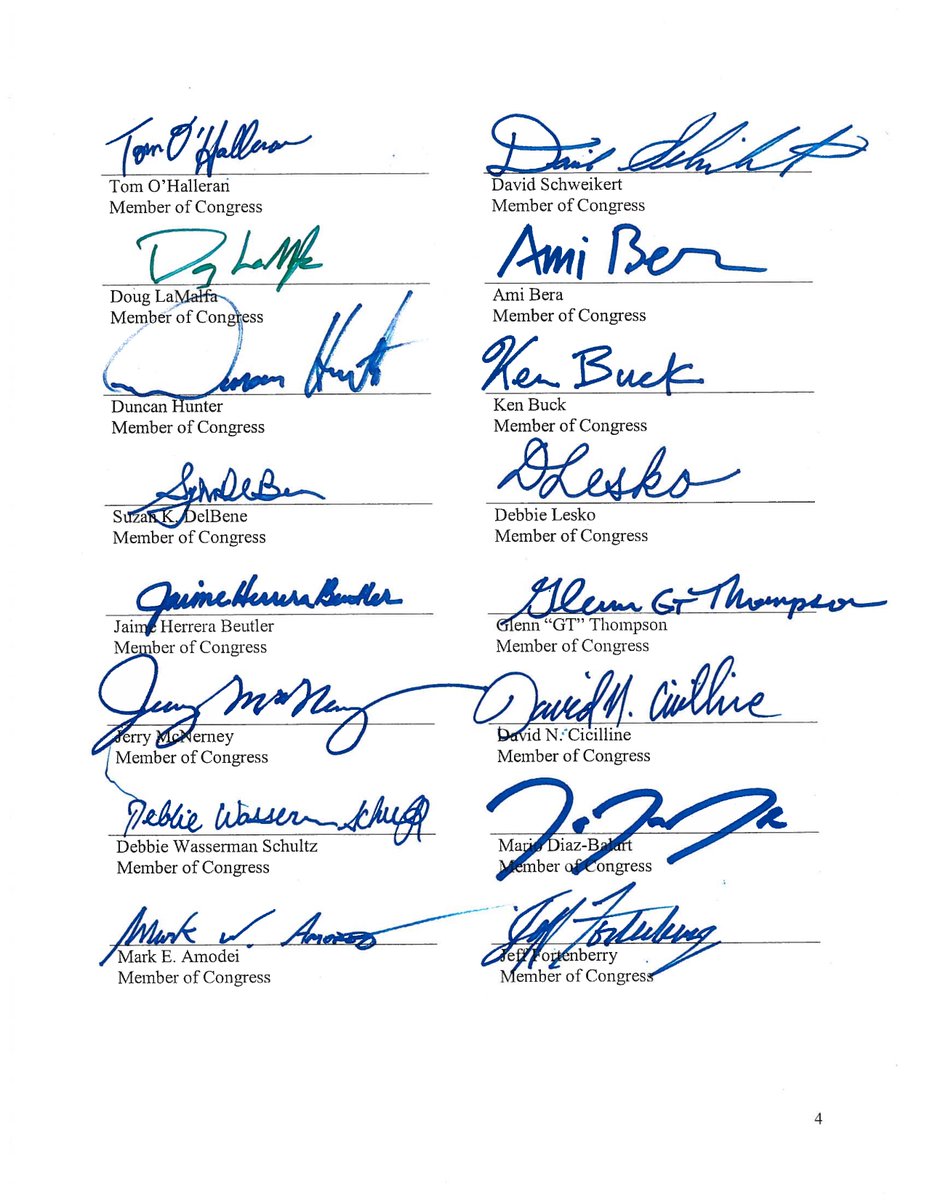 Tom O'Halleran
David Schweikert
Tom O'Halleran
David Schweikert
Member of Congress
Member of Congress
Doug LaMalfa
Ami Bera
Doug LaMalfa
Ami Bera
Member of Congress
Member of Congress
Duncan Hunter
Ken Buck
Duncan Hunter
Ken Buck
Member of Congress
Member of Congress
DelBene
D Lesko
Suzan K. DelBene
Debbie Lesko
Member of Congress
Member of Congress
Jaime Herrera Beutler
Glenn GT Thompson
Jaime Herrera Beutler
Glenn "GT" Thompson
Member of Congress
Member of Congress
Jerry McNerney
David N. Cicilline
Jerry McNerney
David N. Cicilline
Member of Congress
Member of Congress
Debbie Wasserman Schultz
Debbie Wasserman Schultz
Mario Diaz-Balart
Member of Congress
Member of Congress
Mark Amodei
Jeff Fortenberry
Mark E. Amodei
Jeff Fortenberry
Member of Congress
Member of Congress
4